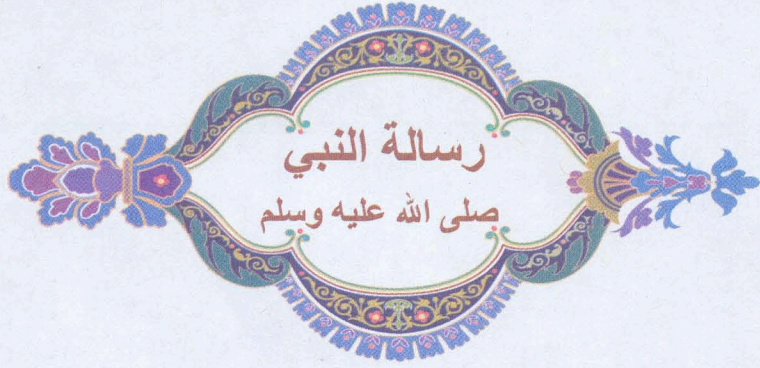 رسالة النبي
صلى الله عليه وسلم